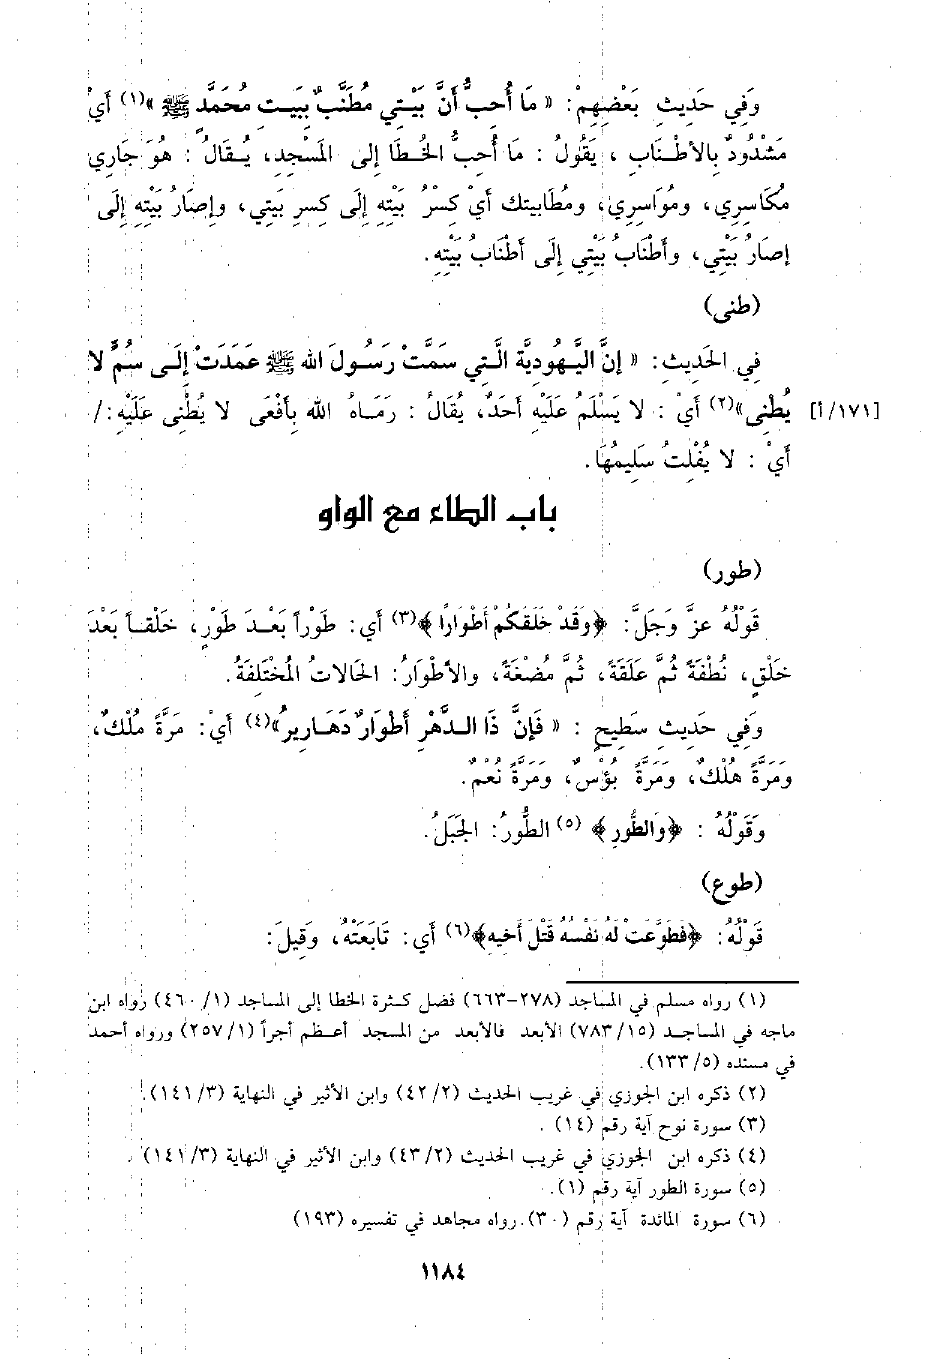 وَفِي حَدِيثِ بَعْضِهِمْ : « مَا أُحِبُّ أَنَّ بَيْتِي مُطَنَّبٌ بِبَيت مُحَمَّدٍ ﷺ »(١) أَيْ
مَشْدُودٌ بِالأطْنَابِ ، يَقُولُ : مَا أُحِبُّ الخُطَا إلى المَسْجِدِ، يُقَالُ : هُوَ جَارِي
مُكَاسِرِي، ومُوَاسِرِي، ومُطَابِيتك أيْ كِسْرُ بَيْتِهِ إِلَى كِسرِ بَيتِي، وإصَارُ بَيْتِهِ إلَى
إصَارُ بَيْتِي، وأطْنَابُ بَيْتِي إلَى أطْنَابُ بَيْتِهِ.
(طنى)
فِي الحَدِيثِ : « إنَّ اليَهُودِيَّة الَّتِي سَمَّتْ رَسُولَ الله ﷺ عَمَدَتْ إلَى سُمٍّ لا
يُطْنِى»(٢) أَيْ : لا يَسْلَمُ عَلَيْهِ أَحَدٌ، يُقَالُ : رَمَاهُ الله بِأفْعَى لا يُطْنِى عَلَيْهِ:/ [١٧١/أ]
أَيْ : لا يُفْلِتُ سَلِيمُهَا.
باب الطاء مع الواو
(طور)
قَوْلُهُ عزَّ وَجَلَّ: ﴿وَقَدْ خَلَقَكُمْ أَطْوَارًا ﴾(٣) أي: طَوْراً بَعْدَ طَوْرٍ، خَلْقاً بَعْدَ
خَلْقٍ، نُطْفَةً ثُمَّ عَلَقَةً، ثُمَّ مُضْغَةً، والأطْوَارُ: الحَالاتُ المُخْتَلِفَةُ.
وَفِي حَدِيثِ سَطِيحٍ : « فَإِنَّ ذَا الدَّهْرِ أَطْوَارٌ دَهَارِيرُ»(٤) أَيْ: مَرَّةً مُلْكٌ،
وَمَرَّةً هُلْكٌ، ومَرَّةً بُؤْسٌ، ومَرَّةً نُعْمٌ.
وَقَوْلُهُ : ﴿وَالطُّورِ﴾ (٥) الطُّورُ: الجَبَلُ.
(طوع)
قَوْلُهُ: ﴿فَطَوَّعَتْ لَهُ نَفْسُهُ قَتْلَ أَخِيهِ﴾(٦) أي: تَابَعَتْهُ، وَقِيلَ:
(١) رواه مسلم في المساجد (٢٧٨-٦٦٣) فضل كثرة الخطا إلى المساجد (١/ ٤٦٠) رواه ابن
ماجه في المساجد (١٥/ ٧٨٣) الأبعد فالأبعد من المسجد أعظم أجراً (١/ ٢٥٧) ورواه أحمد
في مسنده (٥/ ١٣٣).
(٢) ذكره ابن الجوزي في غريب الحديث (٢/ ٤٢) وابن الأثير في النهاية (٣/ ١٤١).
(٣) سورة نوح آية رقم (١٤) .
(٤) ذكره ابن الجوزي في غريب الحديث (٢/ ٤٣) وابن الأثير في النهاية (٣/ ١٤١) .
(٥) سورة الطور آية رقم (١).
(٦) سورة المائدة آية رقم (٣٠). رواه مجاهد في تفسيره (١٩٣)
١١٨٤